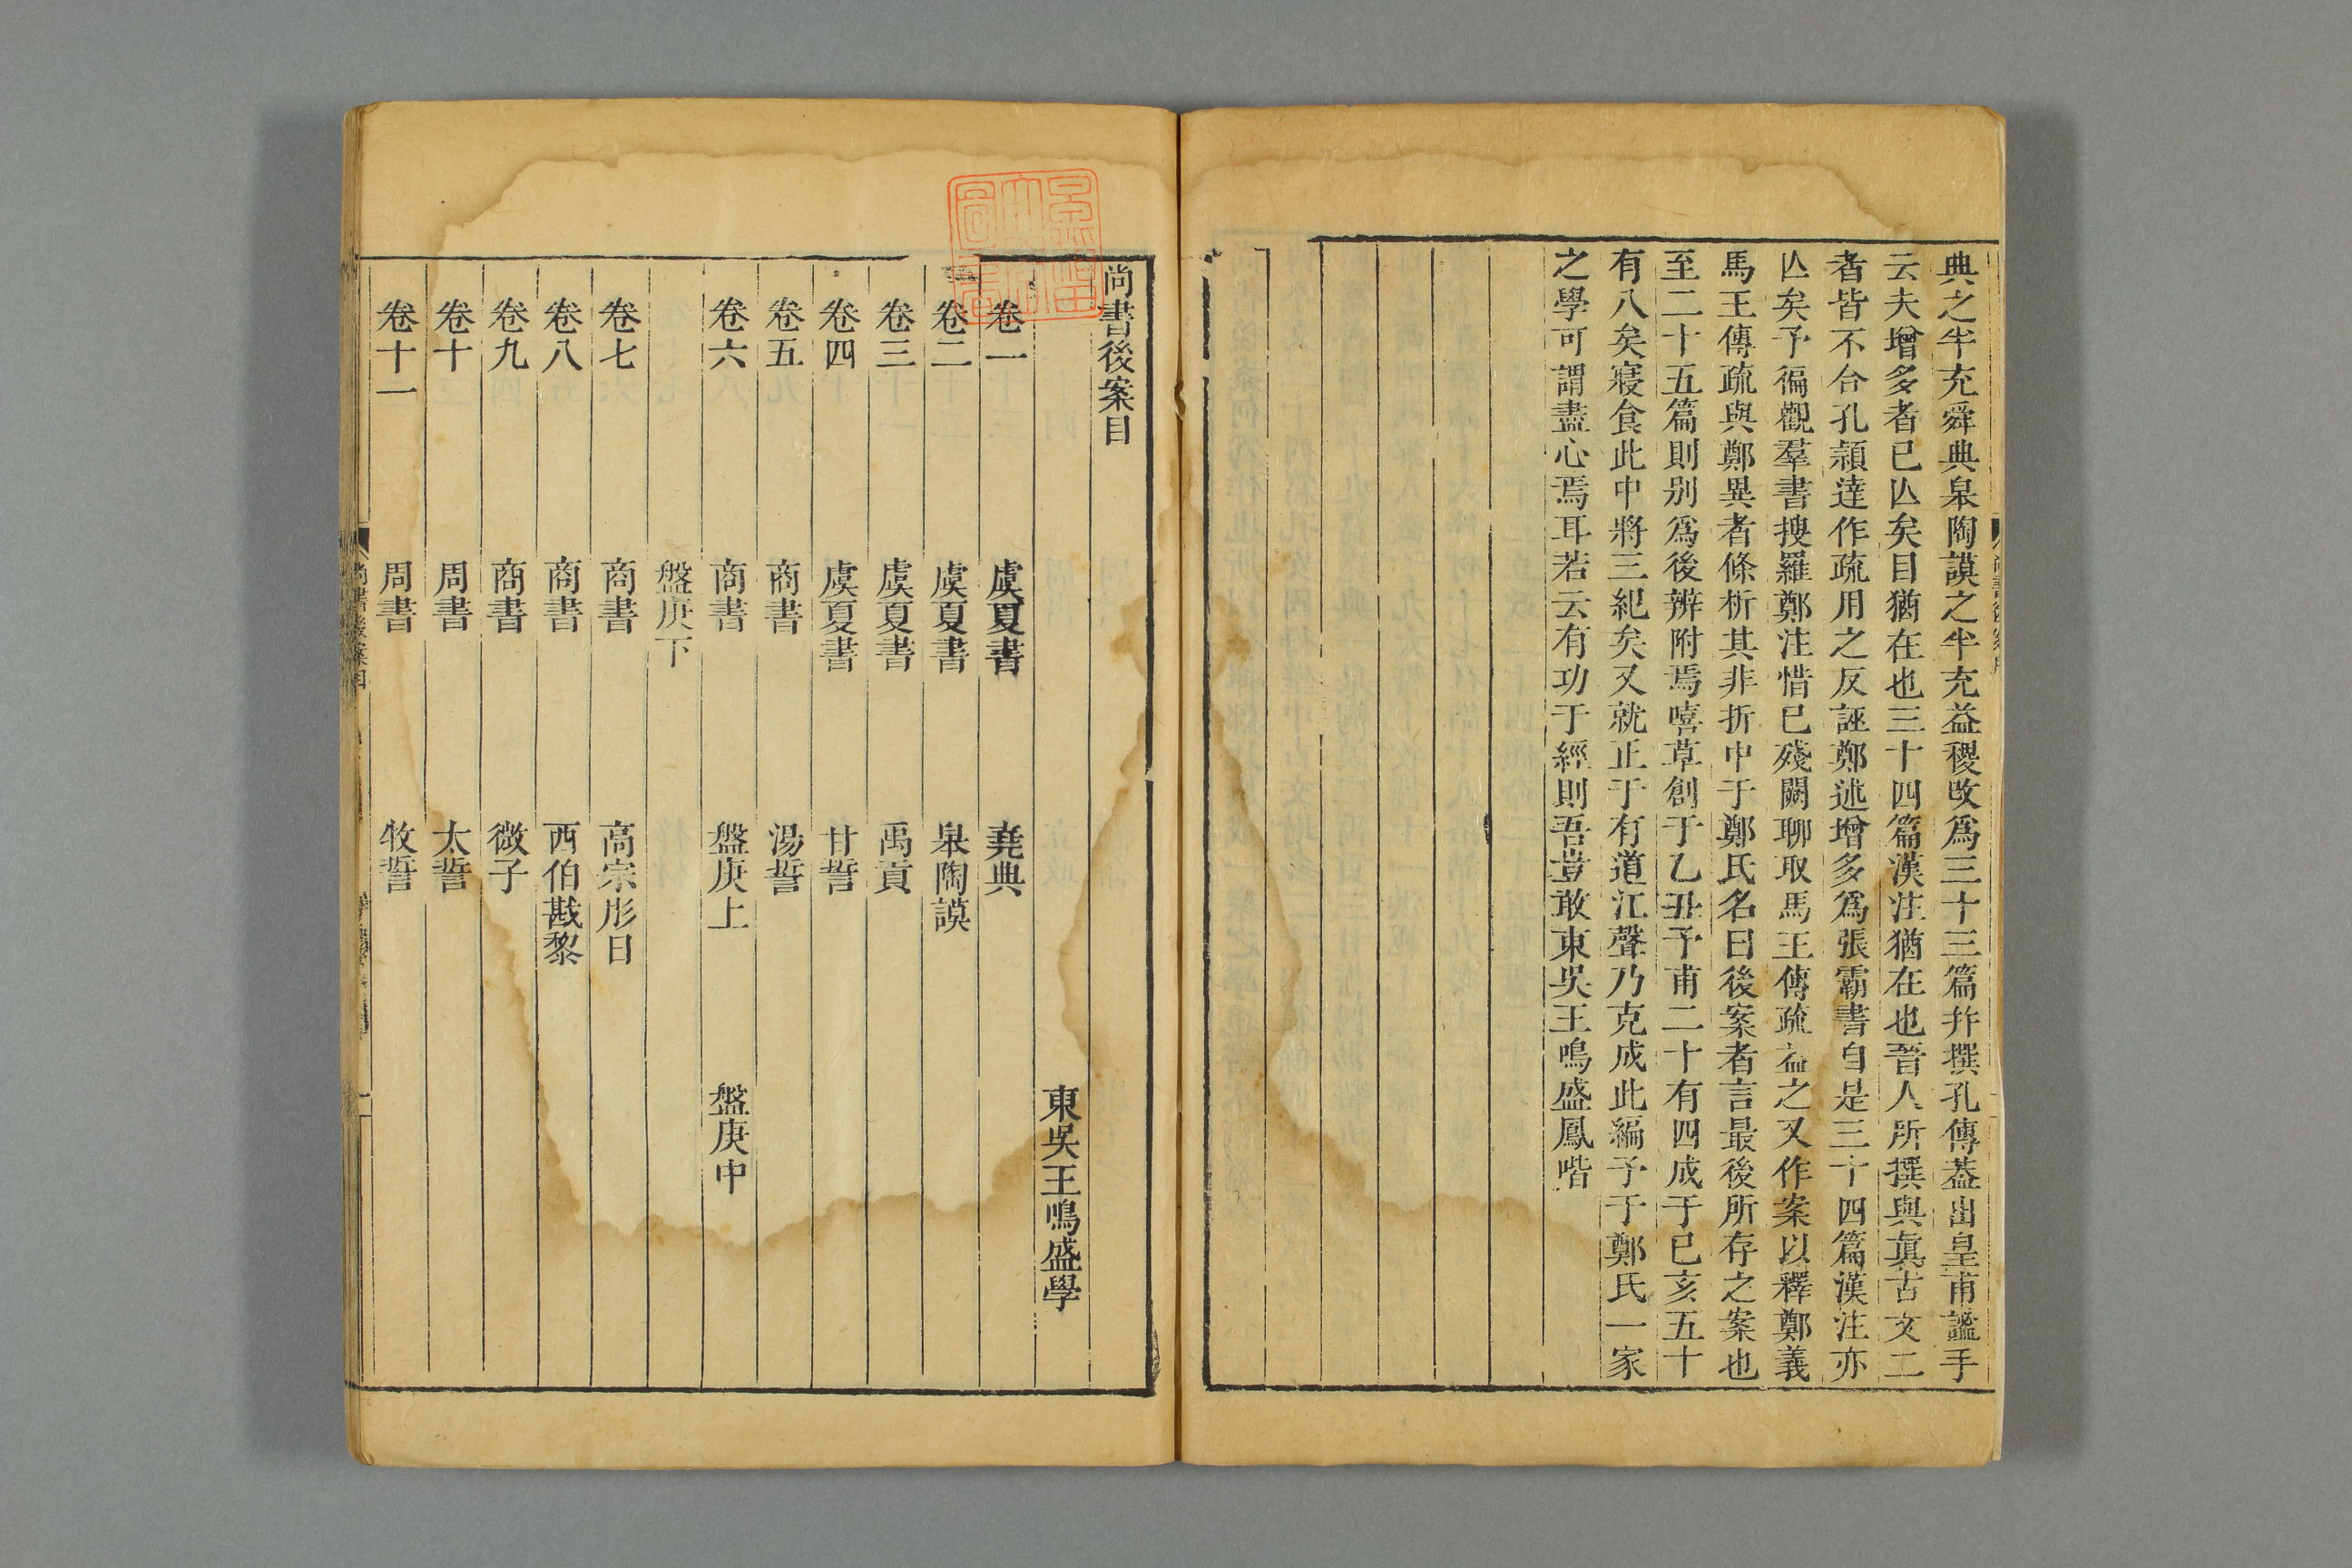 典之半充舜典皋陶謨之半充益稷改爲三十三篇幷撰孔傳葢出皇甫謐手
云夫增多者已亾矣目猶在也三十四篇漢注猶在也晉人所撰與眞古文二
者皆不合孔頴達作疏用之反誣鄭述增多爲張霸書自是三十四篇漢注亦
亾矣予徧觀羣書搜羅鄭注惜已殘闕聊取馬王傳疏益之又作案以釋鄭義
馬王傳疏與鄭異者條析其非折中于鄭氏名曰後案者言最後所存之案也
至二十五篇則别爲後辨附焉嘻草創于乙丑予甫二十有四成于己亥五十
有八矣寢食此中將三紀矣又就正于有道江聲乃克成此編予于鄭氏一家
之學可謂盡心焉耳若云有功于經則吾豈敢東吳王鳴盛鳳喈
尚書後案目
東吳王鳴盛學
卷一 虞夏書 堯典
卷二 虞夏書 皋陶謨
卷三 虞夏書 禹貢
卷四 虞夏書 甘誓
卷五 商書 湯誓
卷六 商書 盤庚上 盤庚中
盤庚下
卷七 商書 高宗肜日
卷八 商書 西伯戡黎
卷九 商書 微子
卷十 周書 太誓
卷十一 周書 牧誓
尚書後案目 一